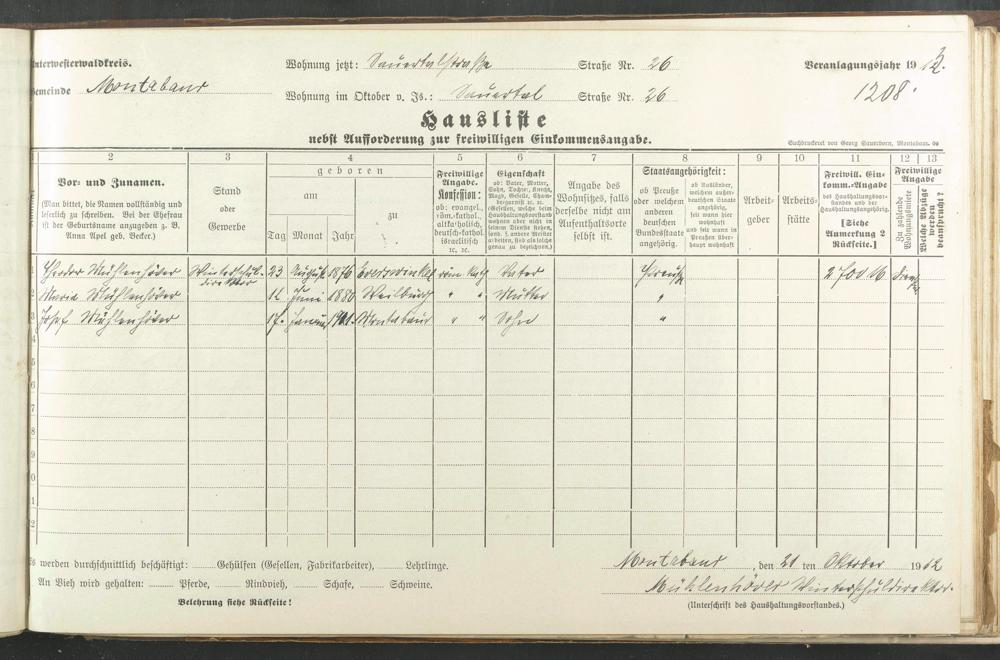 Unterwesterwaldkreis. Wohnung jetzt: Sauertalstraße Straße Nr. 26 Veranlagungsjahr 19
Gemeinde Montabaur Wohnung im Oktober v. Js.: Sauertal Straße Nr. 26 1208.
Hausliste
nebst Aufforderung zur freiwilligen Einkommensangabe.
Buchdruckerei von Georg Sauerborn, Montabaur.
2 3 4 5 6 7 8 9 10 11 12 13
Vor- und Zunamen.
(Man bittet, die Namen vollständig und
leserlich zu schreiben. Bei der Ehefrau
ist der Geburtsname anzugeben z. B.
Anna Apel geb. Becker.)
Stand
oder
Gewerbe
geboren
am
zu
Tag Monat Jahr
Freiwillige
Angabe.
Konfession:
ob: evangel.,
röm.-kathol.,
altkatholisch,
deutsch-kathol.
israelitisch
ec. ec.
Eigenschaft
ob: Vater, Mutter,
Sohn, Tochter, Knecht,
Magd, Geselle, Cham-
bergarnist ec. ec.
(Gesellen, welche beim
Haushaltungsvorstand
wohnen aber nicht in
seinem Dienste stehen,
wenn z. anderer Meister
arbeiten, sind als solche
genau zu bezeichnen.)
Angabe des
Wohnsitzes, falls
derselbe nicht am
Aufenthaltsorte
selbst ist.
Staatsangehörigkeit:
ob Preuße
oder welchem
anderen
deutschen
Bundesstaate
angehörig.
ob Ausländer,
welchem außer-
deutschen Staate
angehörig,
seit wann hier
wohnhaft und
seit wann in
Preußen über-
haupt wohnhaft
Arbeit-
geber
Arbeits-
stätte
Freiwill. Ein-
komm.-Angabe
des Haushaltungsvor-
standes und der
Haushaltungsangehörig.
[Siehe
Anmerkung 2
Rückseite.]
Freiwillige
Angabe
Zu zahlende
Wohnungsmiete
Welche Abzüge
werden
beansprucht?
1 Mühlenhöver Winterschul-
direktor 23 August 1876 Everswinkel röm. kath Vater Preuße 2700 M
2 Maria Mühlenhöver Juni 1880 Weilburg " " Mutter "
3 Josef Mühlenhöver 17. Januar Montabaur " " Sohn "
4
5
6
7
8
9
0
1
2
Es werden durchschnittlich beschäftigt: Gehülfen (Gesellen, Fabrikarbeiter), Lehrlinge.
An Vieh wird gehalten: Pferde, Rindvieh, Schafe, Schweine.
Belehrung siehe Rückseite!
Montabaur, den 21 ten Oktober 1912
Mühlenhöver Winterschuldirektor.
(Unterschrift des Haushaltungsvorstandes.)